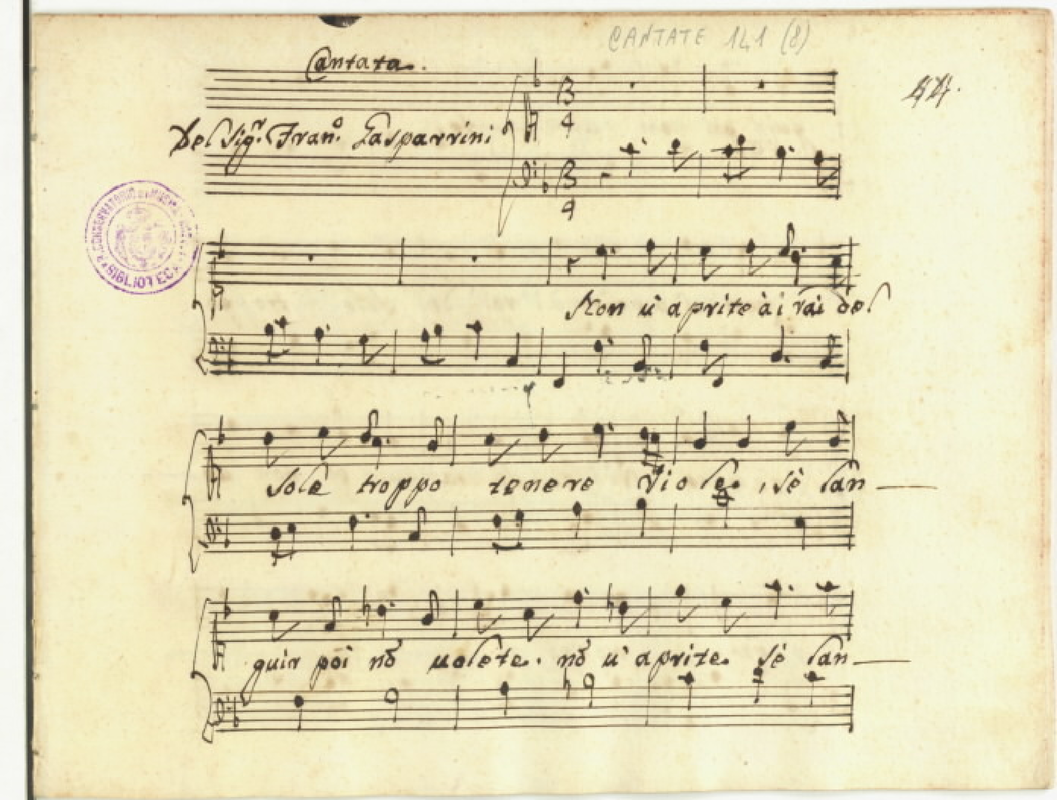 CANTATE 141 (8)
Cantata.
44.
Del Sig.r Fran.o Gasparrini
3
4
3
4
BIBLIOTECA
Non u'aprite ài rai del
Sole troppo tenere Viole, sè lan
guir poi nō uolete. nō u'aprite sè lan